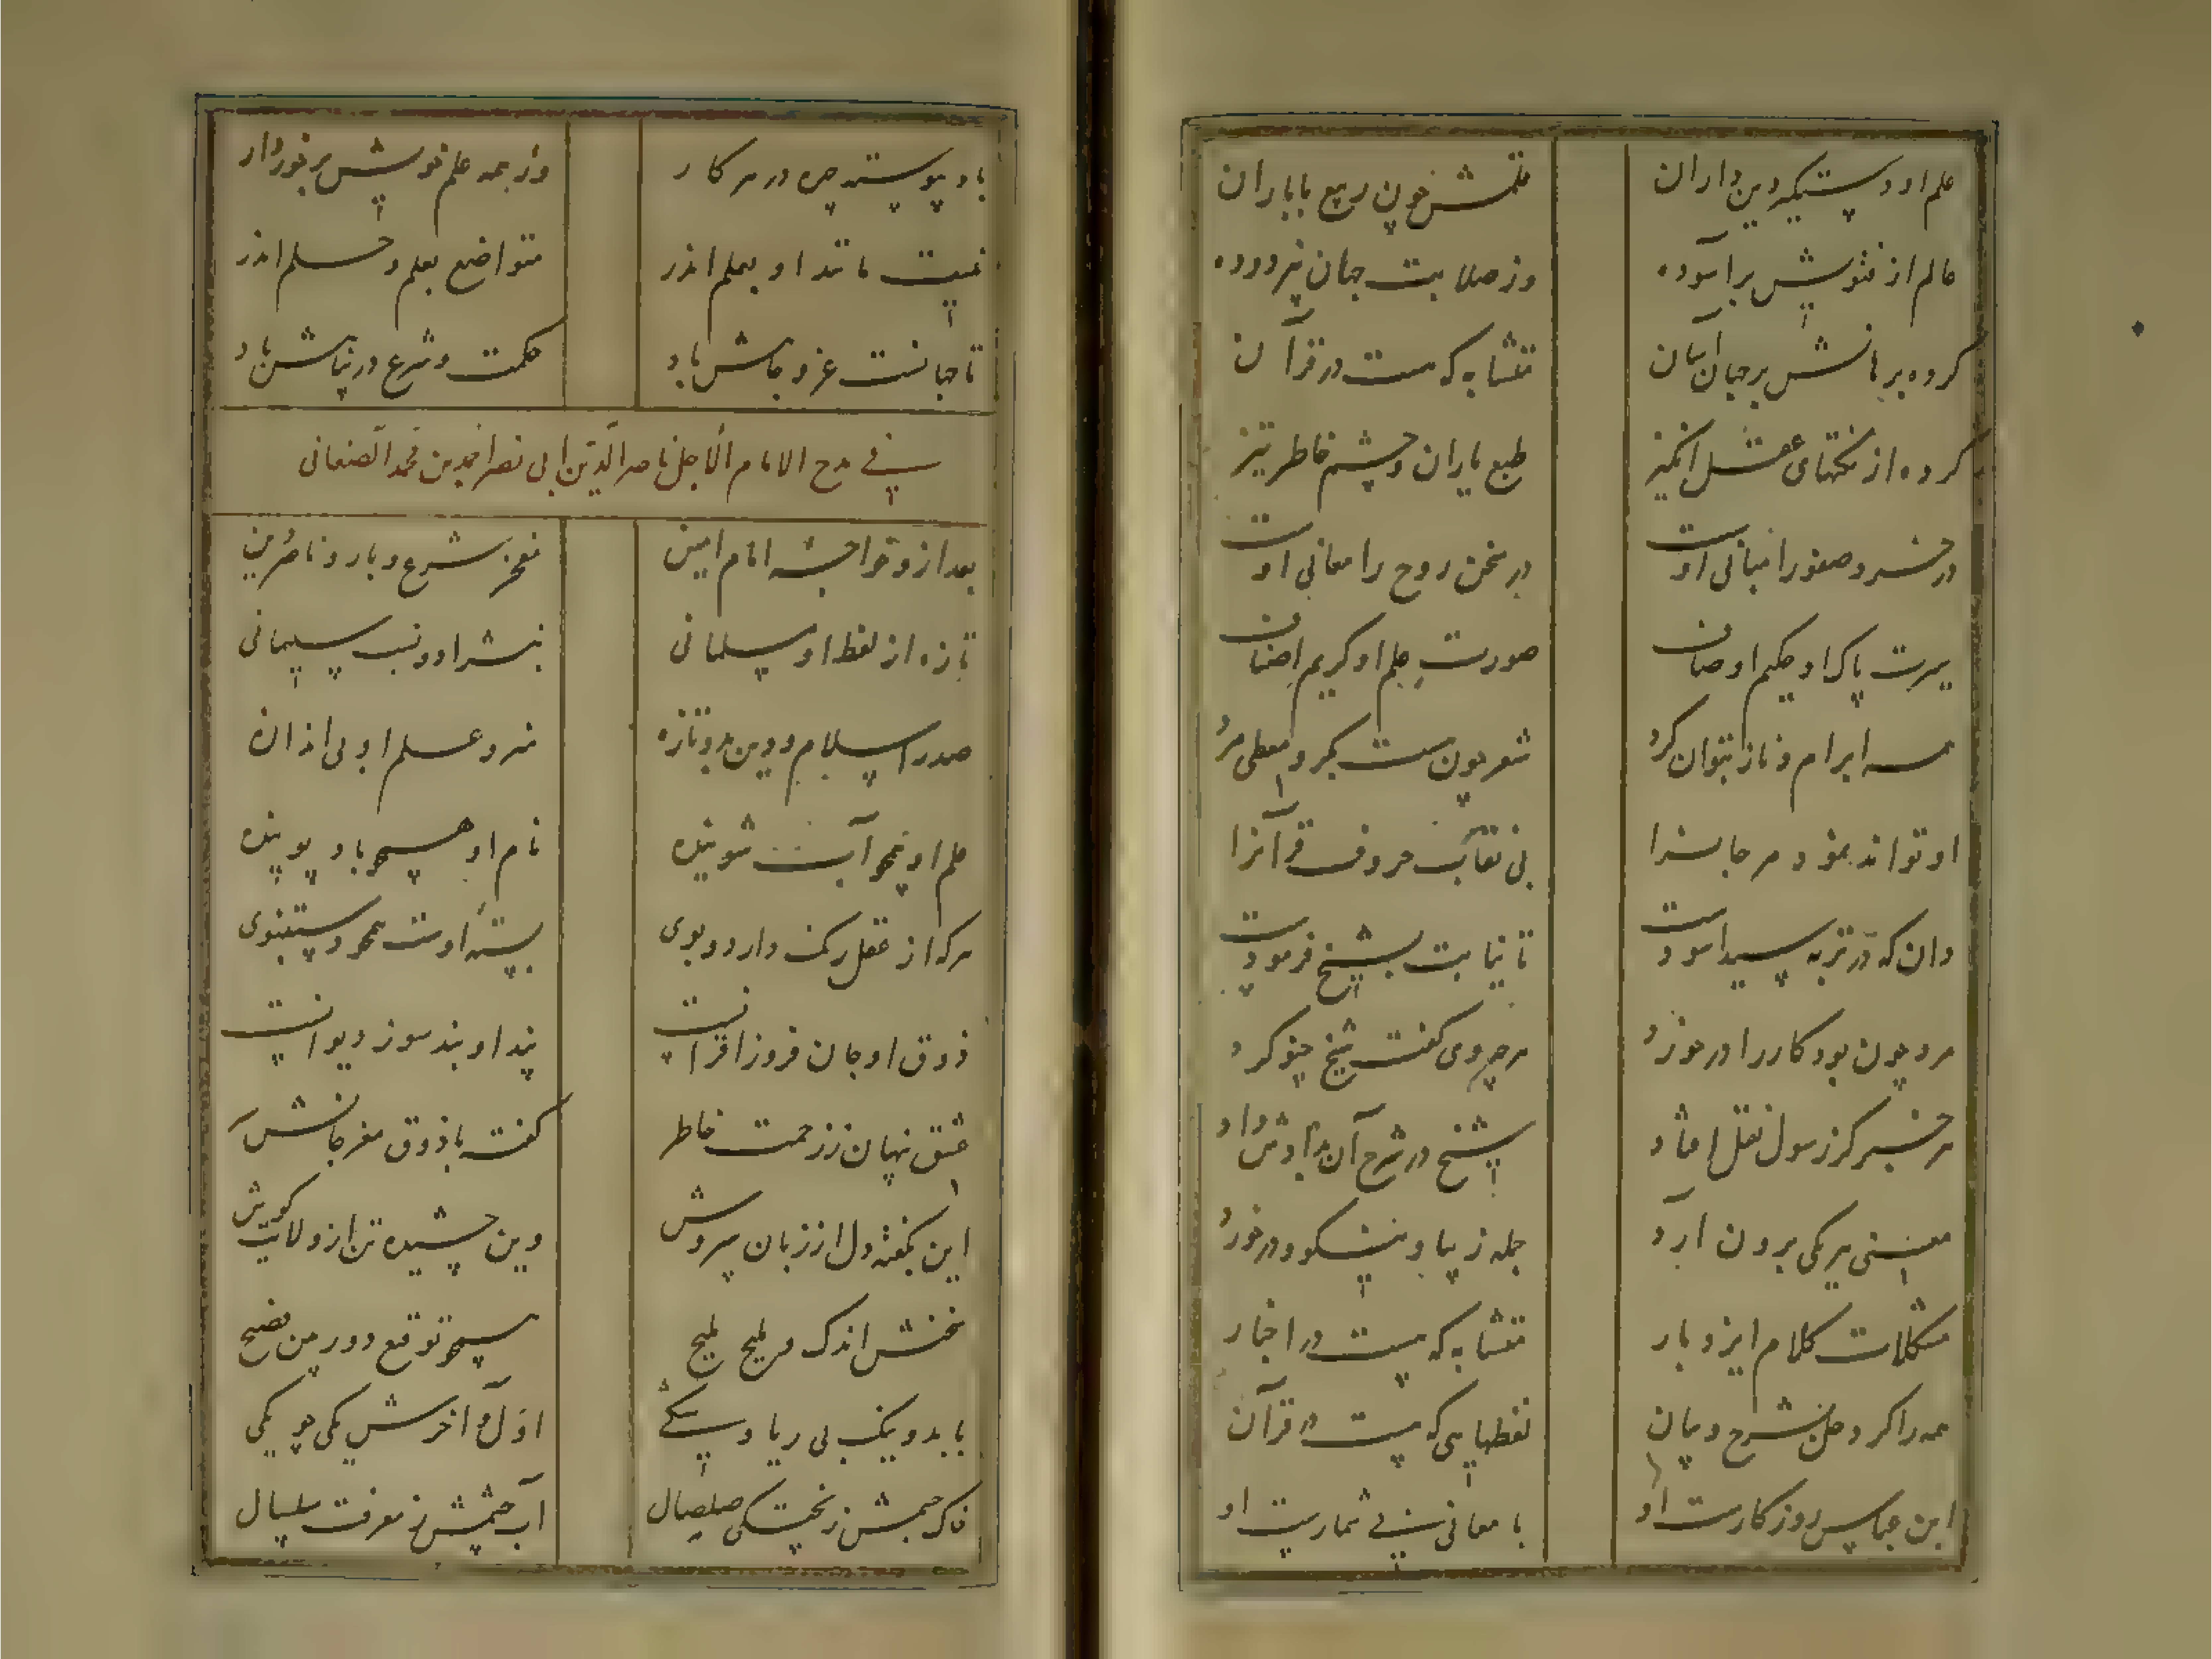 علم او دستگیر دین داران
قلمش خون ربیع با باران
عالم از فتویش برآسوده
وز صلابت جهان
کرده برهانش بر جهان آسان
متشابه که هست در قرآن
کرده از نکتهای عقل انگیز
طبع یاران و چشم خاطر تیز
در صور را مبانی اوست
در سخن روح را معانی اوست
سیرت پاک او حکیم اوصاف
صورت حلم او کریم
همه ابرام و ناز بتوان کرد
شعر چون هست بکر و معطی مرد
او تواند نمود مر جانرا
بی نقاب حروف قرآنرا
وان که در تربه سید اسودست
تا نیابت بشیخ فرمودست
مرد چون بود کار را در خورد
هرچه وی گفت شیخ چنو کرد
هر خبر کز رسول نقل افتاد
شیخ در شرح آن داد
معنی هر یکی برون آرد
جمله زیبا و نیکو و در خورد
مشکلات کلام ایزد بار
متشابه که هست در اخبار
همه را کرده حل بشرح و بیان
لفظهایی که هست در قرآن
ابن عباس روزگارست او
با معانی بی شمارست او
باد پیوسته چیره در هر کار
وز همه علم خویش برخوردار
نیست مانند او بعلم اندر
متواضع بعلم و حلم اندر
تا جهانست عز و جاهش باد
حکمت و شرع در پناهش باد
فی مدح الامام الاجل ناصر الدین ابی نصر احمد بن محمد الصنعانی
بعد ازو خواجه امام امین
مفخر شرع و یار و ناصر دین
تازه از لفظ او مسلمانی
بنشر او و نسب سلیمانی
صدر اسلام و دین بدو تازه
هنر و علم او بی اندازه
علم او همچو آب شوینده
نام او همچو باد پوینده
هرکه از عقل رنگ دارد و بوی
بسته اوست همچو دستنبوی
ذوق او جان فروز اقرانست
پند او بند سوز دیوانست
عشق پنهان ز زحمت خاطر
گفت با ذوق مغز جانش
این بگفته دل از زبان سروش
وین چشیده تن از ولایت گوش
سخنش اندک و ملیح ملیح
همچو توقیع دور من فصیح
با بد و نیک بی ریا و شکی
اول و آخرش یکی چو یکی
خاک جسمش ز پختگی صلصال
آب چشمش ز معرفت سلسال